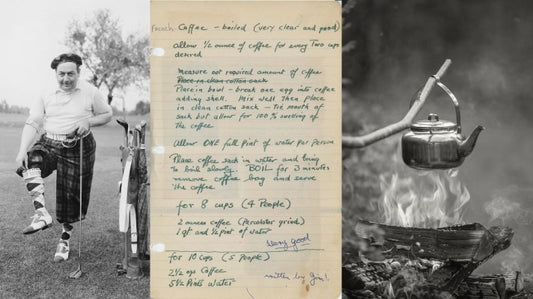 French Coffee - boiled (very clear and good)
Allow ½ ounce of coffee for every Two cups
desired
Measure out required amount of coffee
Place in clean cotton sack
Place in bowl - break one egg into coffee
adding shell. Mix well Then place
in clean cotton sack - tie mouth of
sack but allow for 100% swelling of
the coffee
Allow ONE full Pint of water per Person
Place coffee sack in water and bring
to boil slowly. BOIL for 3 minutes
remove coffee bag and serve
the coffee
for 8 cups (4 People)
2 ounces coffee (Percolator grind)
1 qt and ½ pint of water
Very good
for 10 cups (5 People)
2½ ozs Coffee
5½ Pints Water
written by